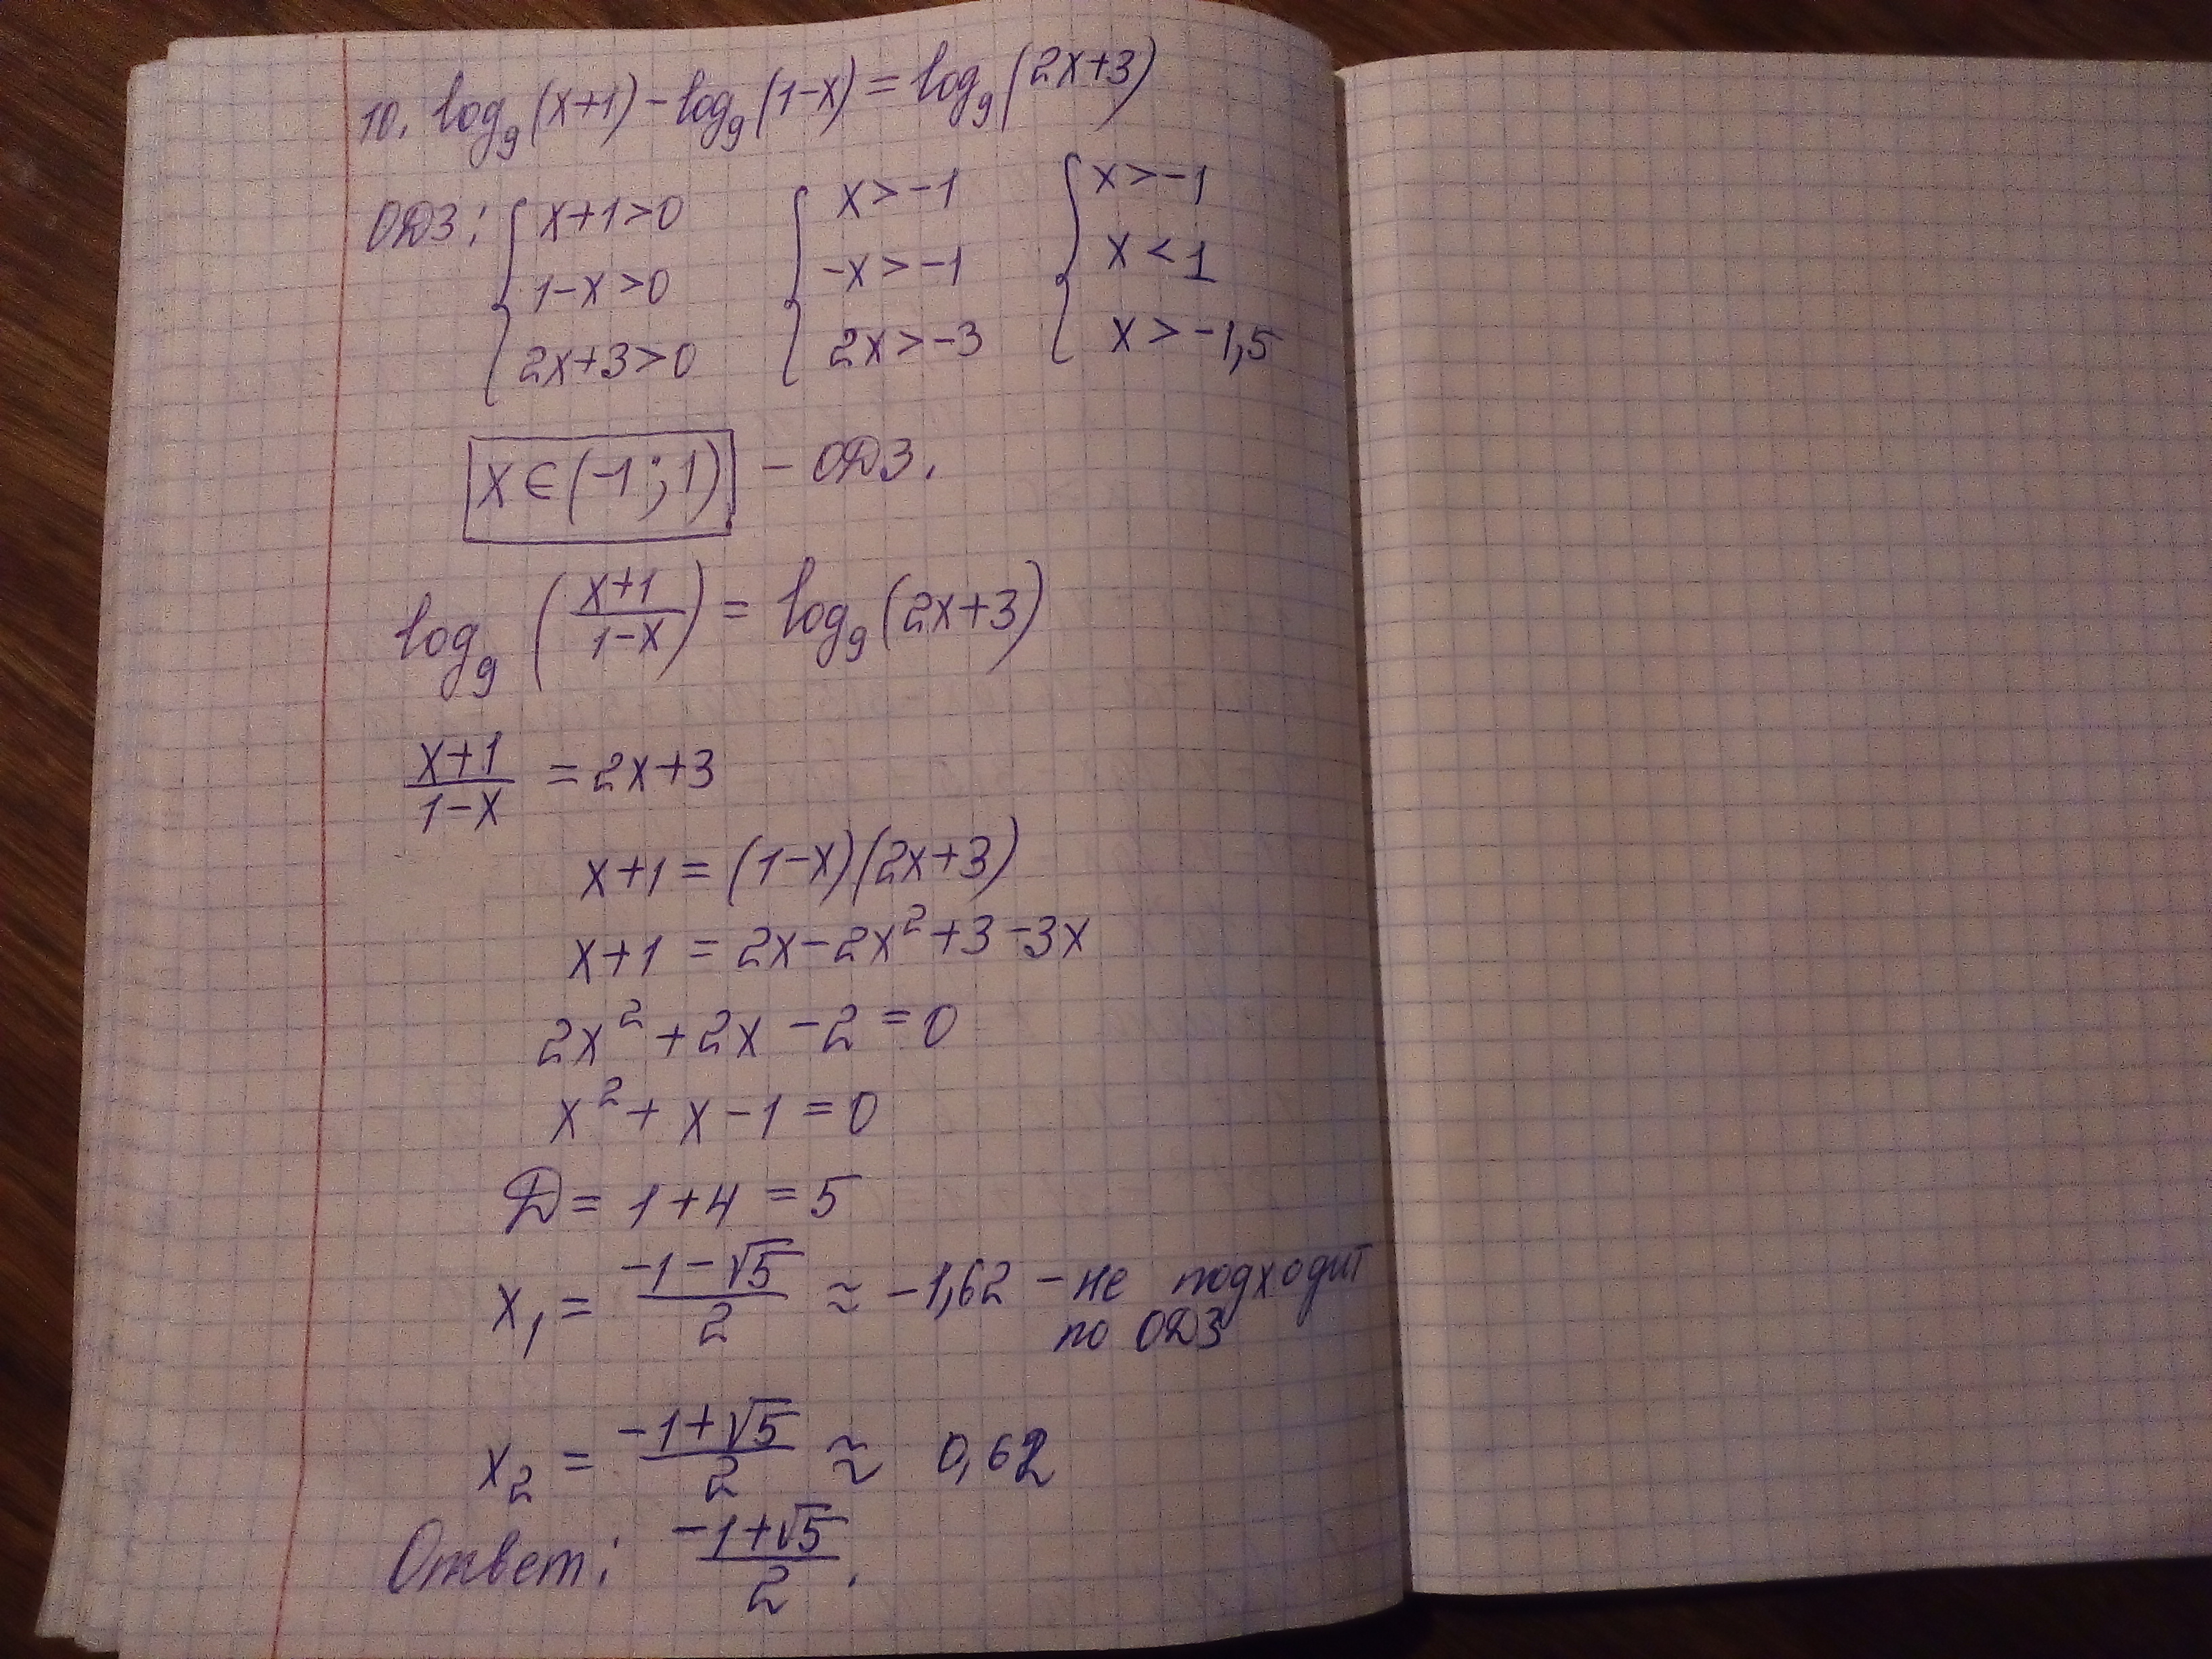 10. log₉(x+1) - log₉(1-x) = log₉(2x+3)
ОДЗ: { x+1>0 { x>-1 { x>-1
1-x>0 -x>-1 x<1
2x+3>0 2x>-3 x>-1,5
x∈(-1;1) - ОДЗ.
log₉((x+1)/(1-x)) = log₉(2x+3)
(x+1)/(1-x) = 2x+3
x+1 = (1-x)(2x+3)
x+1 = 2x-2x²+3-3x
2x²+2x-2=0
x²+x-1=0
D=1+4=5
x₁ = (-1-√5)/2 ≈ -1,62 - не подходит
по ОДЗ
x₂ = (-1+√5)/2 ≈ 0,62
Ответ: (-1+√5)/2.